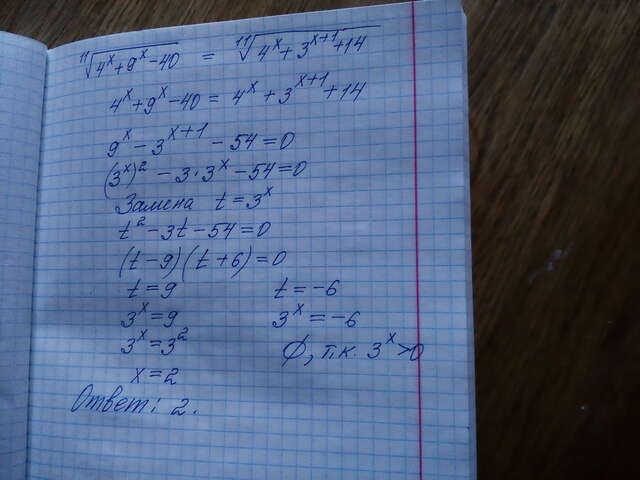 ¹¹√(4ˣ+9ˣ-40) = ¹¹√(4ˣ+3ˣ⁺¹+14)
4ˣ+9ˣ-40 = 4ˣ+3ˣ⁺¹+14
9ˣ-3ˣ⁺¹-54=0
(3ˣ)²-3·3ˣ-54=0
Замена t=3ˣ
t²-3t-54=0
(t-9)(t+6)=0
t=9 t=-6
3ˣ=9 3ˣ=-6
3ˣ=3² ∅, т.к. 3ˣ>0
x=2
Ответ: 2.